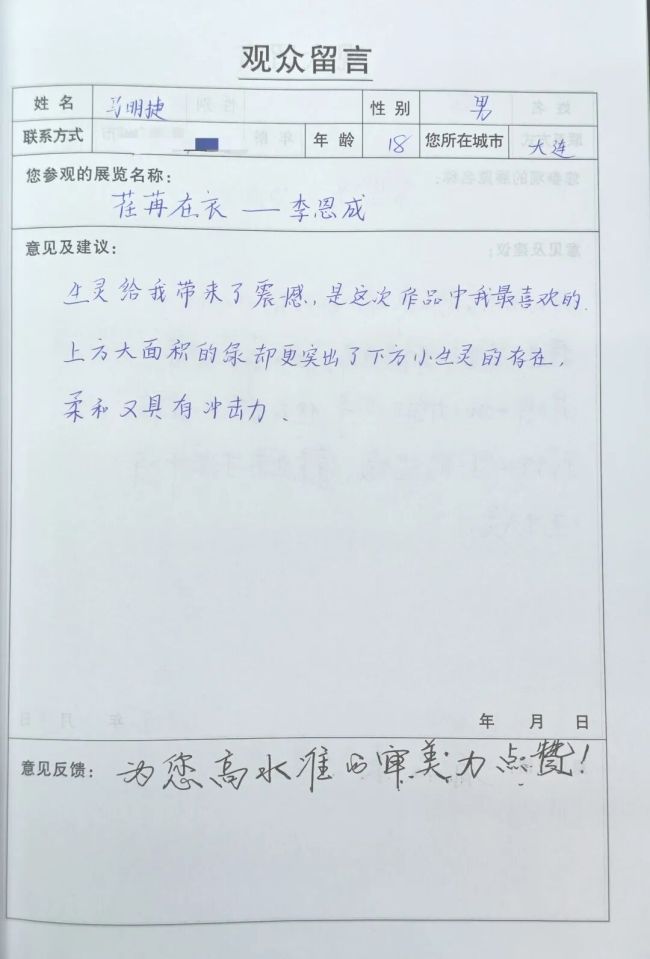 观众留言
姓名 马明捷 性别 男
联系方式 年龄 18 您所在城市 大连
您参观的展览名称:
荏苒在衣 — 李恩成
意见及建议:
生灵给我带来了震撼,是这次作品中我最喜欢的.
上方大面积的绿却更突出了下方小生灵的存在,
柔和又具有冲击力.
年 月 日
意见反馈: 为您高水准的审美力点赞!